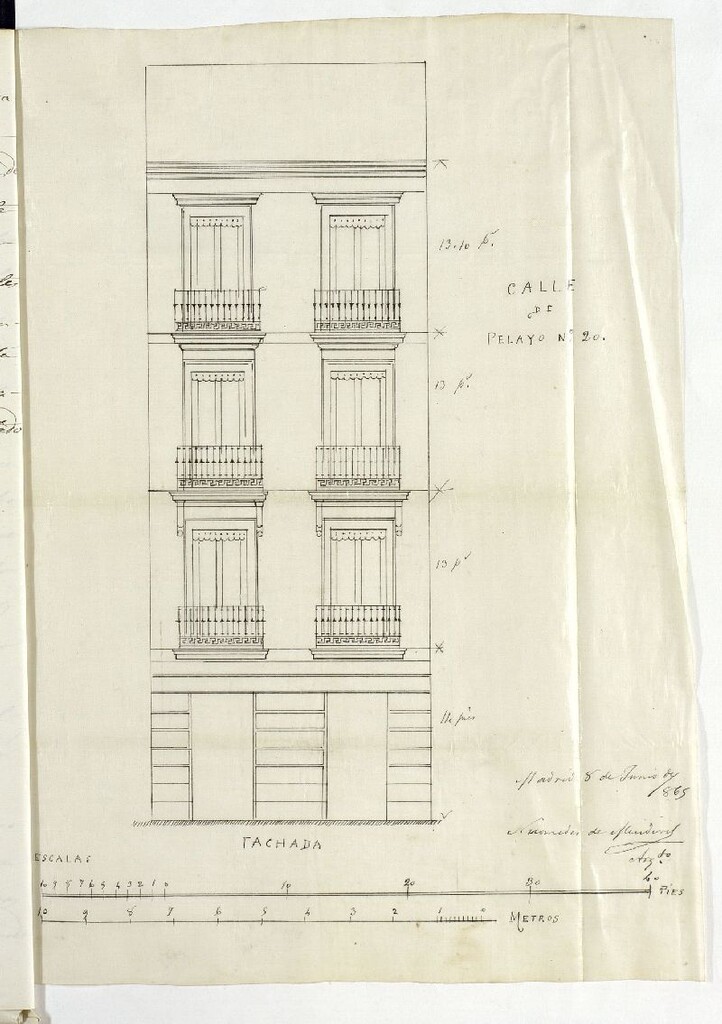 13.10 p.s
CALLE
DE
PELAYO Nº 20.
13 p.s
13 p.s
14 pies
Madrid 8 de Junio de
1865
de
Arq.to
FACHADA
ESCALAS
10 9 8 7 6 5 4 3 2 1 0 10 20 30 40 PIES
10 9 8 7 6 5 4 3 2 1 0 METROS